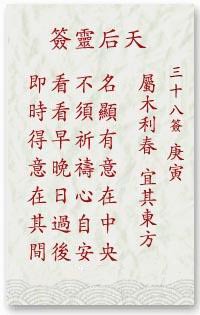 天后靈簽
三十八簽 庚寅
屬木利春 宜其東方
名顯有意在中央
不須祈禱心自安
看看早晚日過後
即時得意在其間